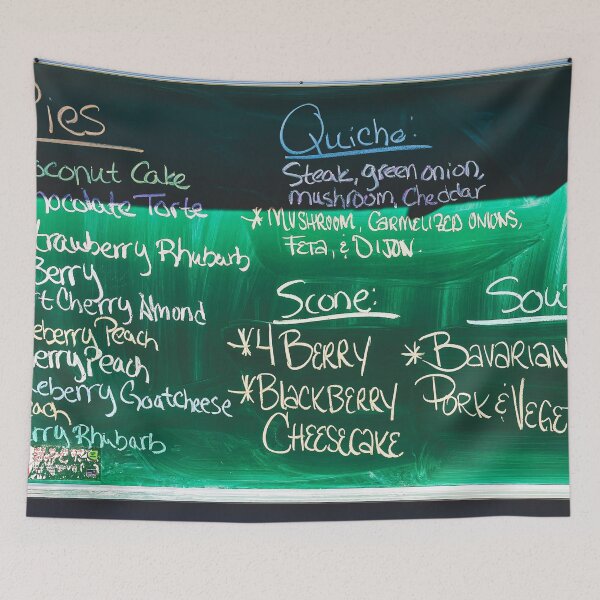 Pies
oconut Cake
hocolate Tarte
trawberry Rhubarb
Berry
rt Cherry Almond
eberry Peach
erry Peach
eberry Goatcheese
each
rry Rhubarb
Quiche:
Steak, green onion,
mushroom, Cheddar
* MUSHROOM, CARMELIZED ONIONS,
FETA, & DIJON.
Scone:
* 4 BERRY
* BLACKBERRY
CHEESECAKE
Sou
* BAVARIAN
PORK & VEGE